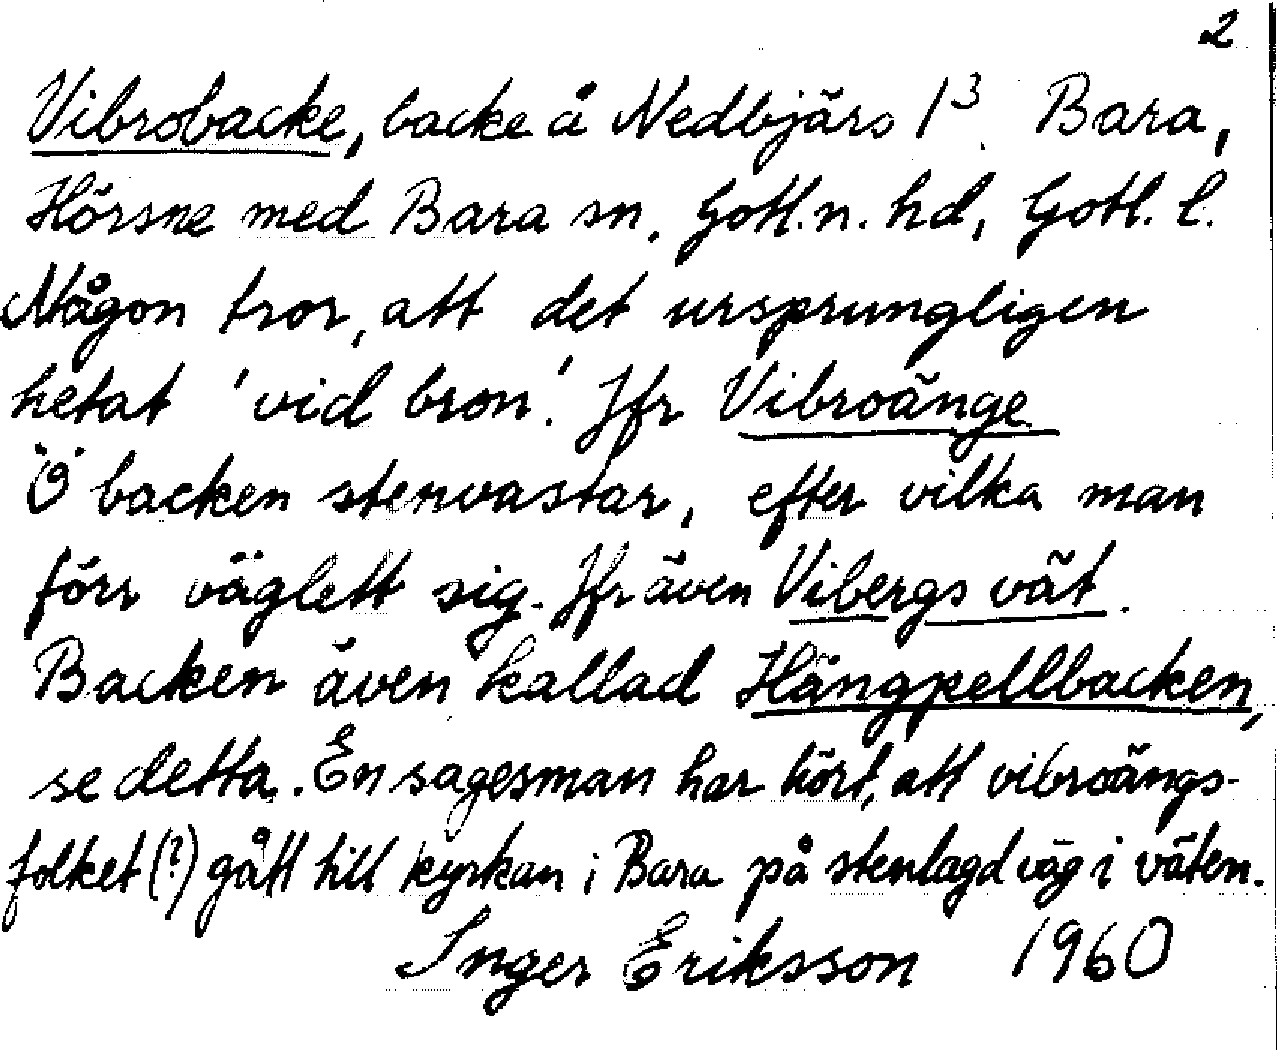 2
Vibrobacke, backe å Nedbjärs 1³ Bara,
Hörsne med Bara sn, Gotl. n. hd, Gotl. l.
Någon tror, att det ursprungligen
hetat 'vid bron'. Jfr Vibroänge
Ö backen stenvastar, efter vilka man
förr väglett sig. Jfr även Vibergs vät.
Backen även kallad Hängpellbacken,
se detta. En sagesman har hört, att vibroängs-
folket (?) gått till kyrkan i Bara på stenlagd väg i väten.
Inger Eriksson 1960